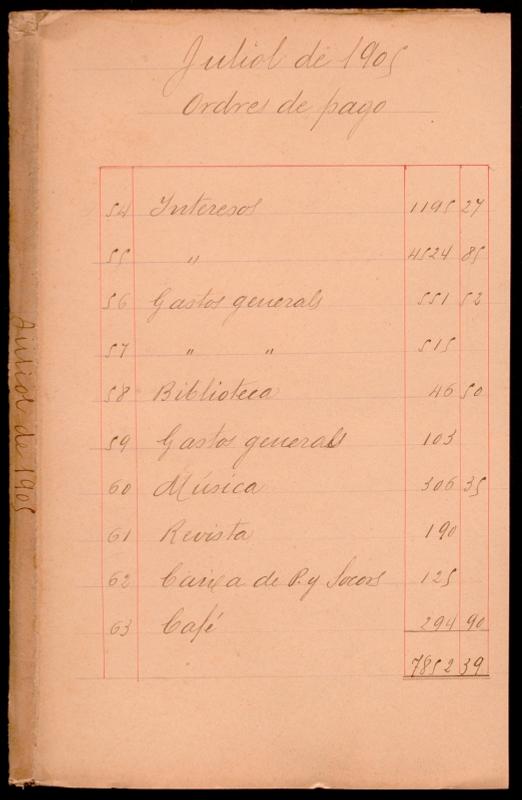 Juliol de 1905
Ordres de pago
54 Interesos 1195 27
55 " 4524 85
56 Gastos generals 551 52
57 " " 515
58 Biblioteca 46 50
59 Gastos generals 103
60 Música 306 35
61 Revista 190
62 Caixa de P. y Socors 125
63 Café 294 90
7852 39
Juliol de 1905